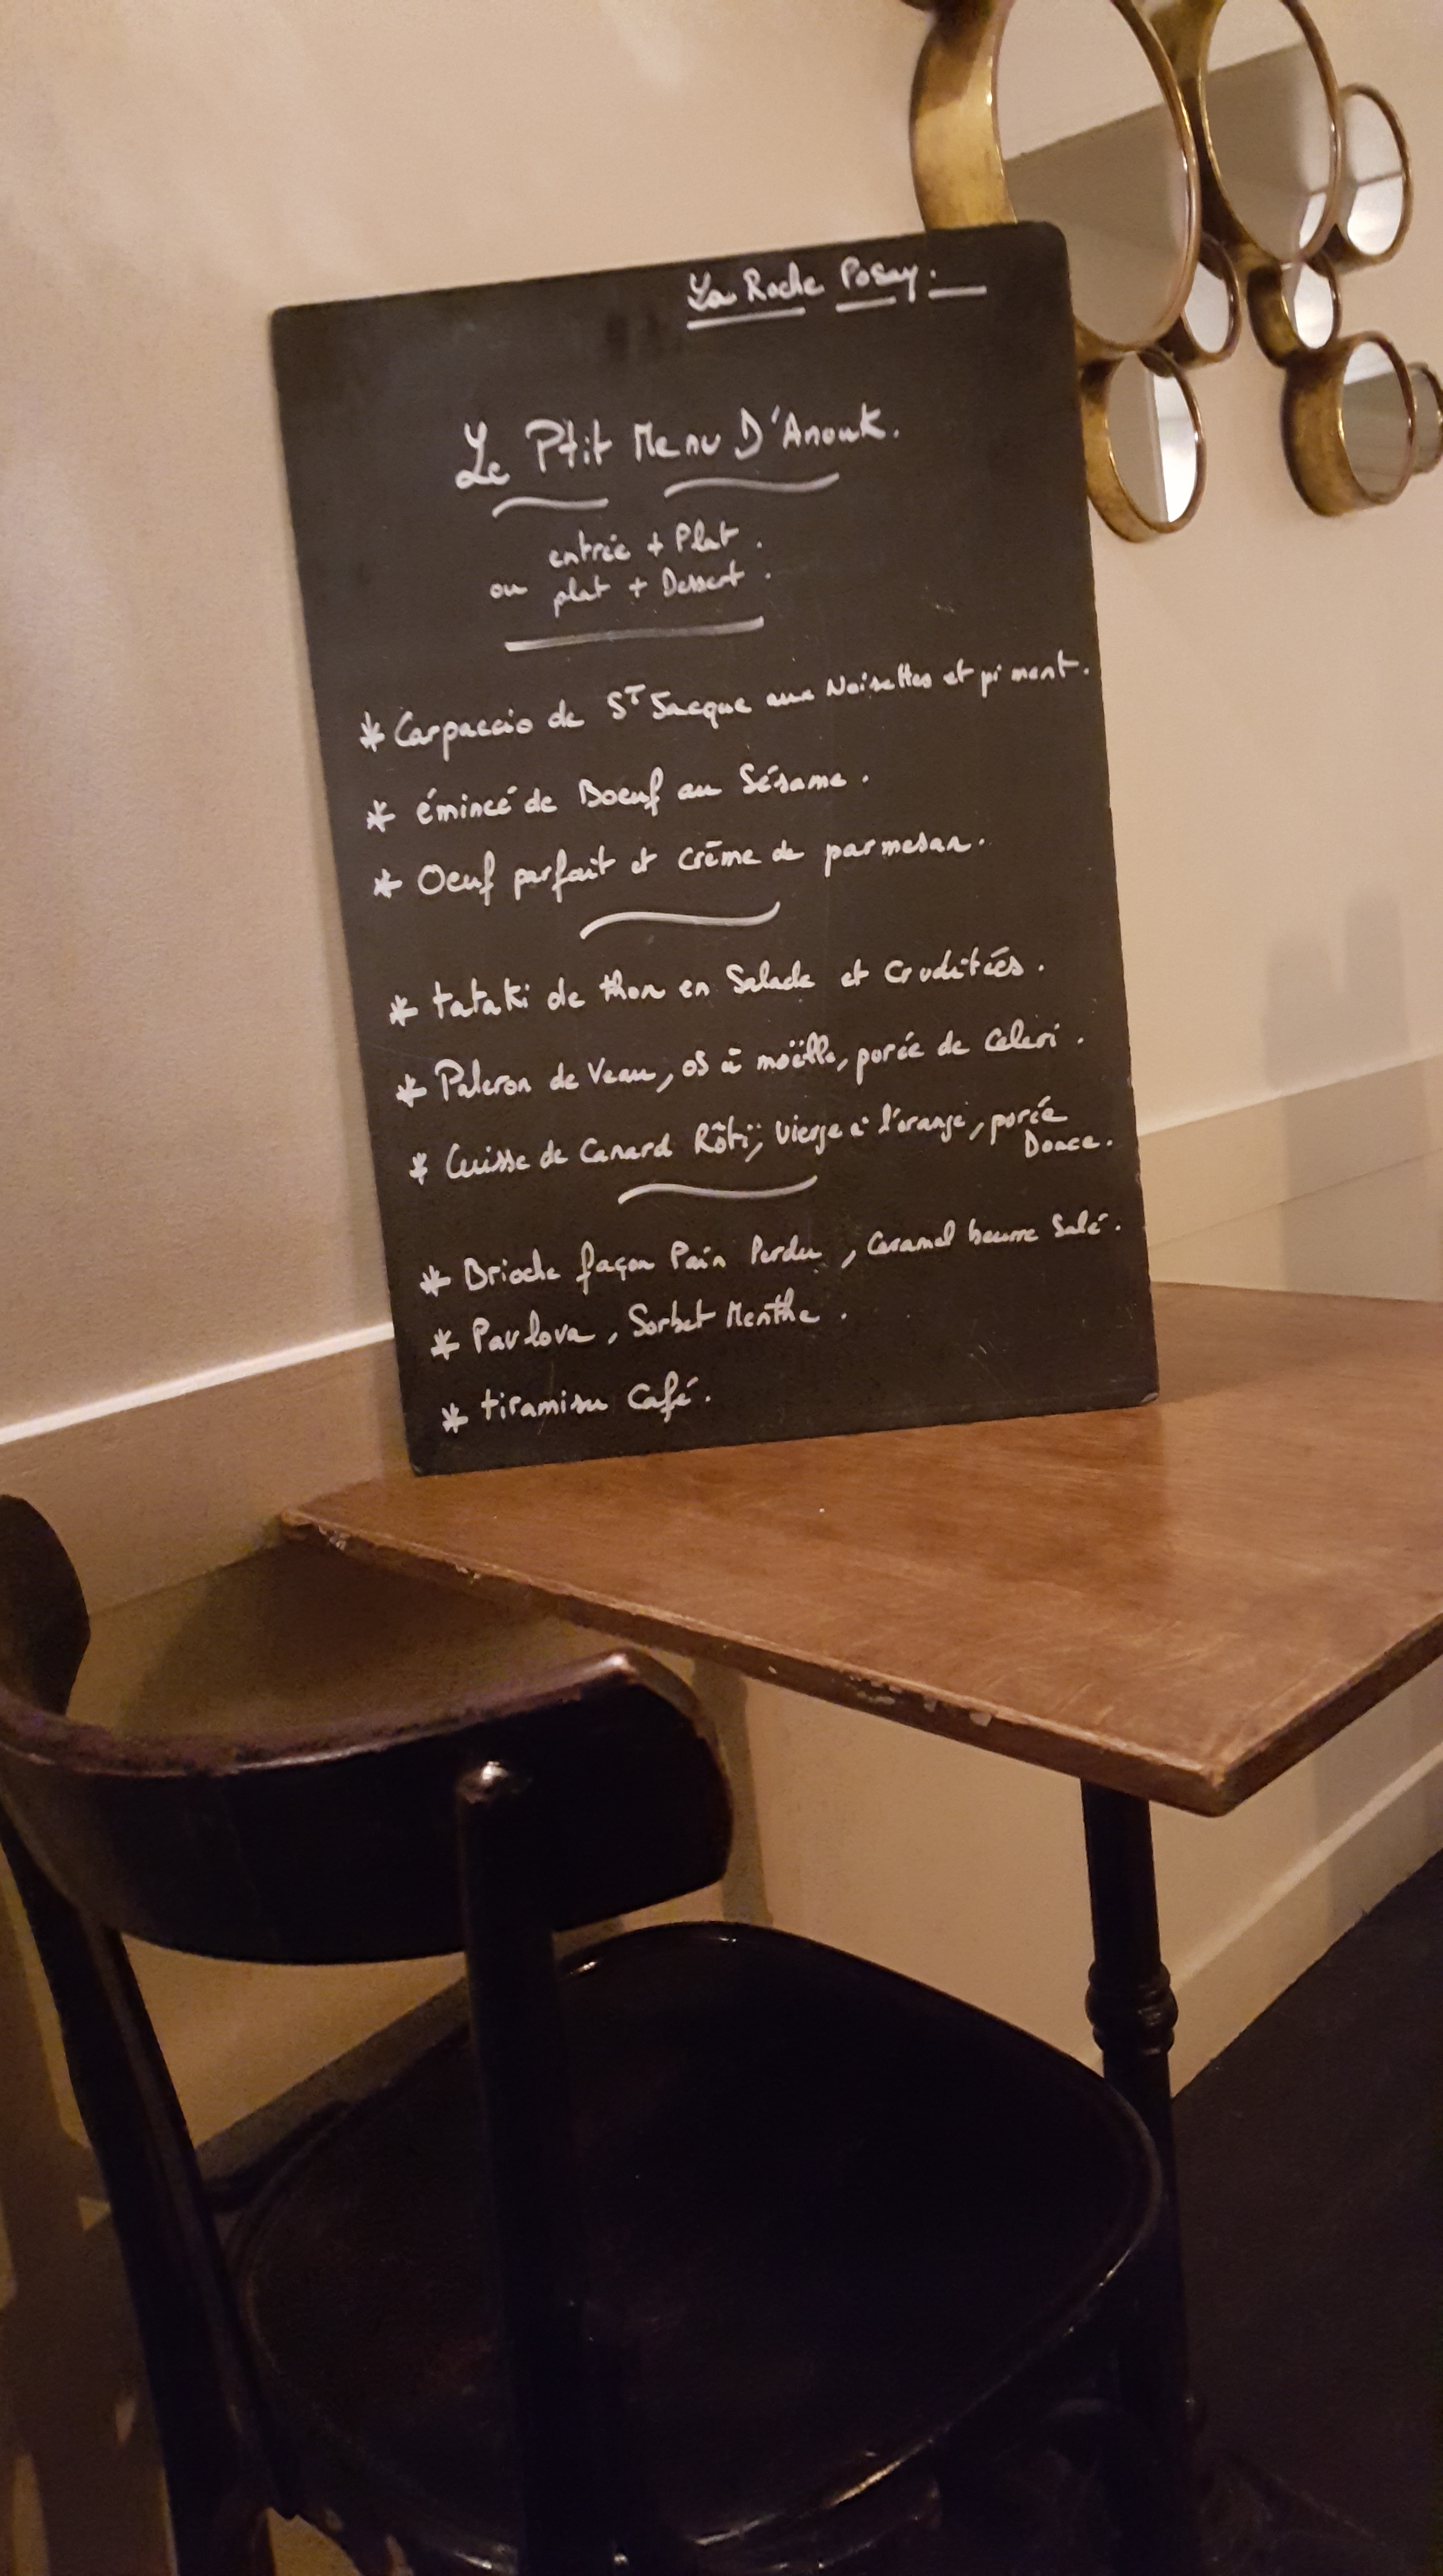 La Roche Posay.
Le Ptit Menu D'Anouk.
entrée + Plat.
ou plat + Dessert.
* Carpaccio de ST Jacque aux Noisettes et piment.
* émincé de Boeuf au Sésame.
* Oeuf parfait et crème de parmesan.
* tataki de thon en Salade et Cruditées.
* Paleron de Veau, os à moëlle, porée de Celeri.
* Cuisse de Canard Rôti, vierge a l'orange, porée
Douce.
* Brioche façon Pain Perdu, Caramel beurre Salé.
* Pavlova, Sorbet Menthe.
* tiramisu Café.